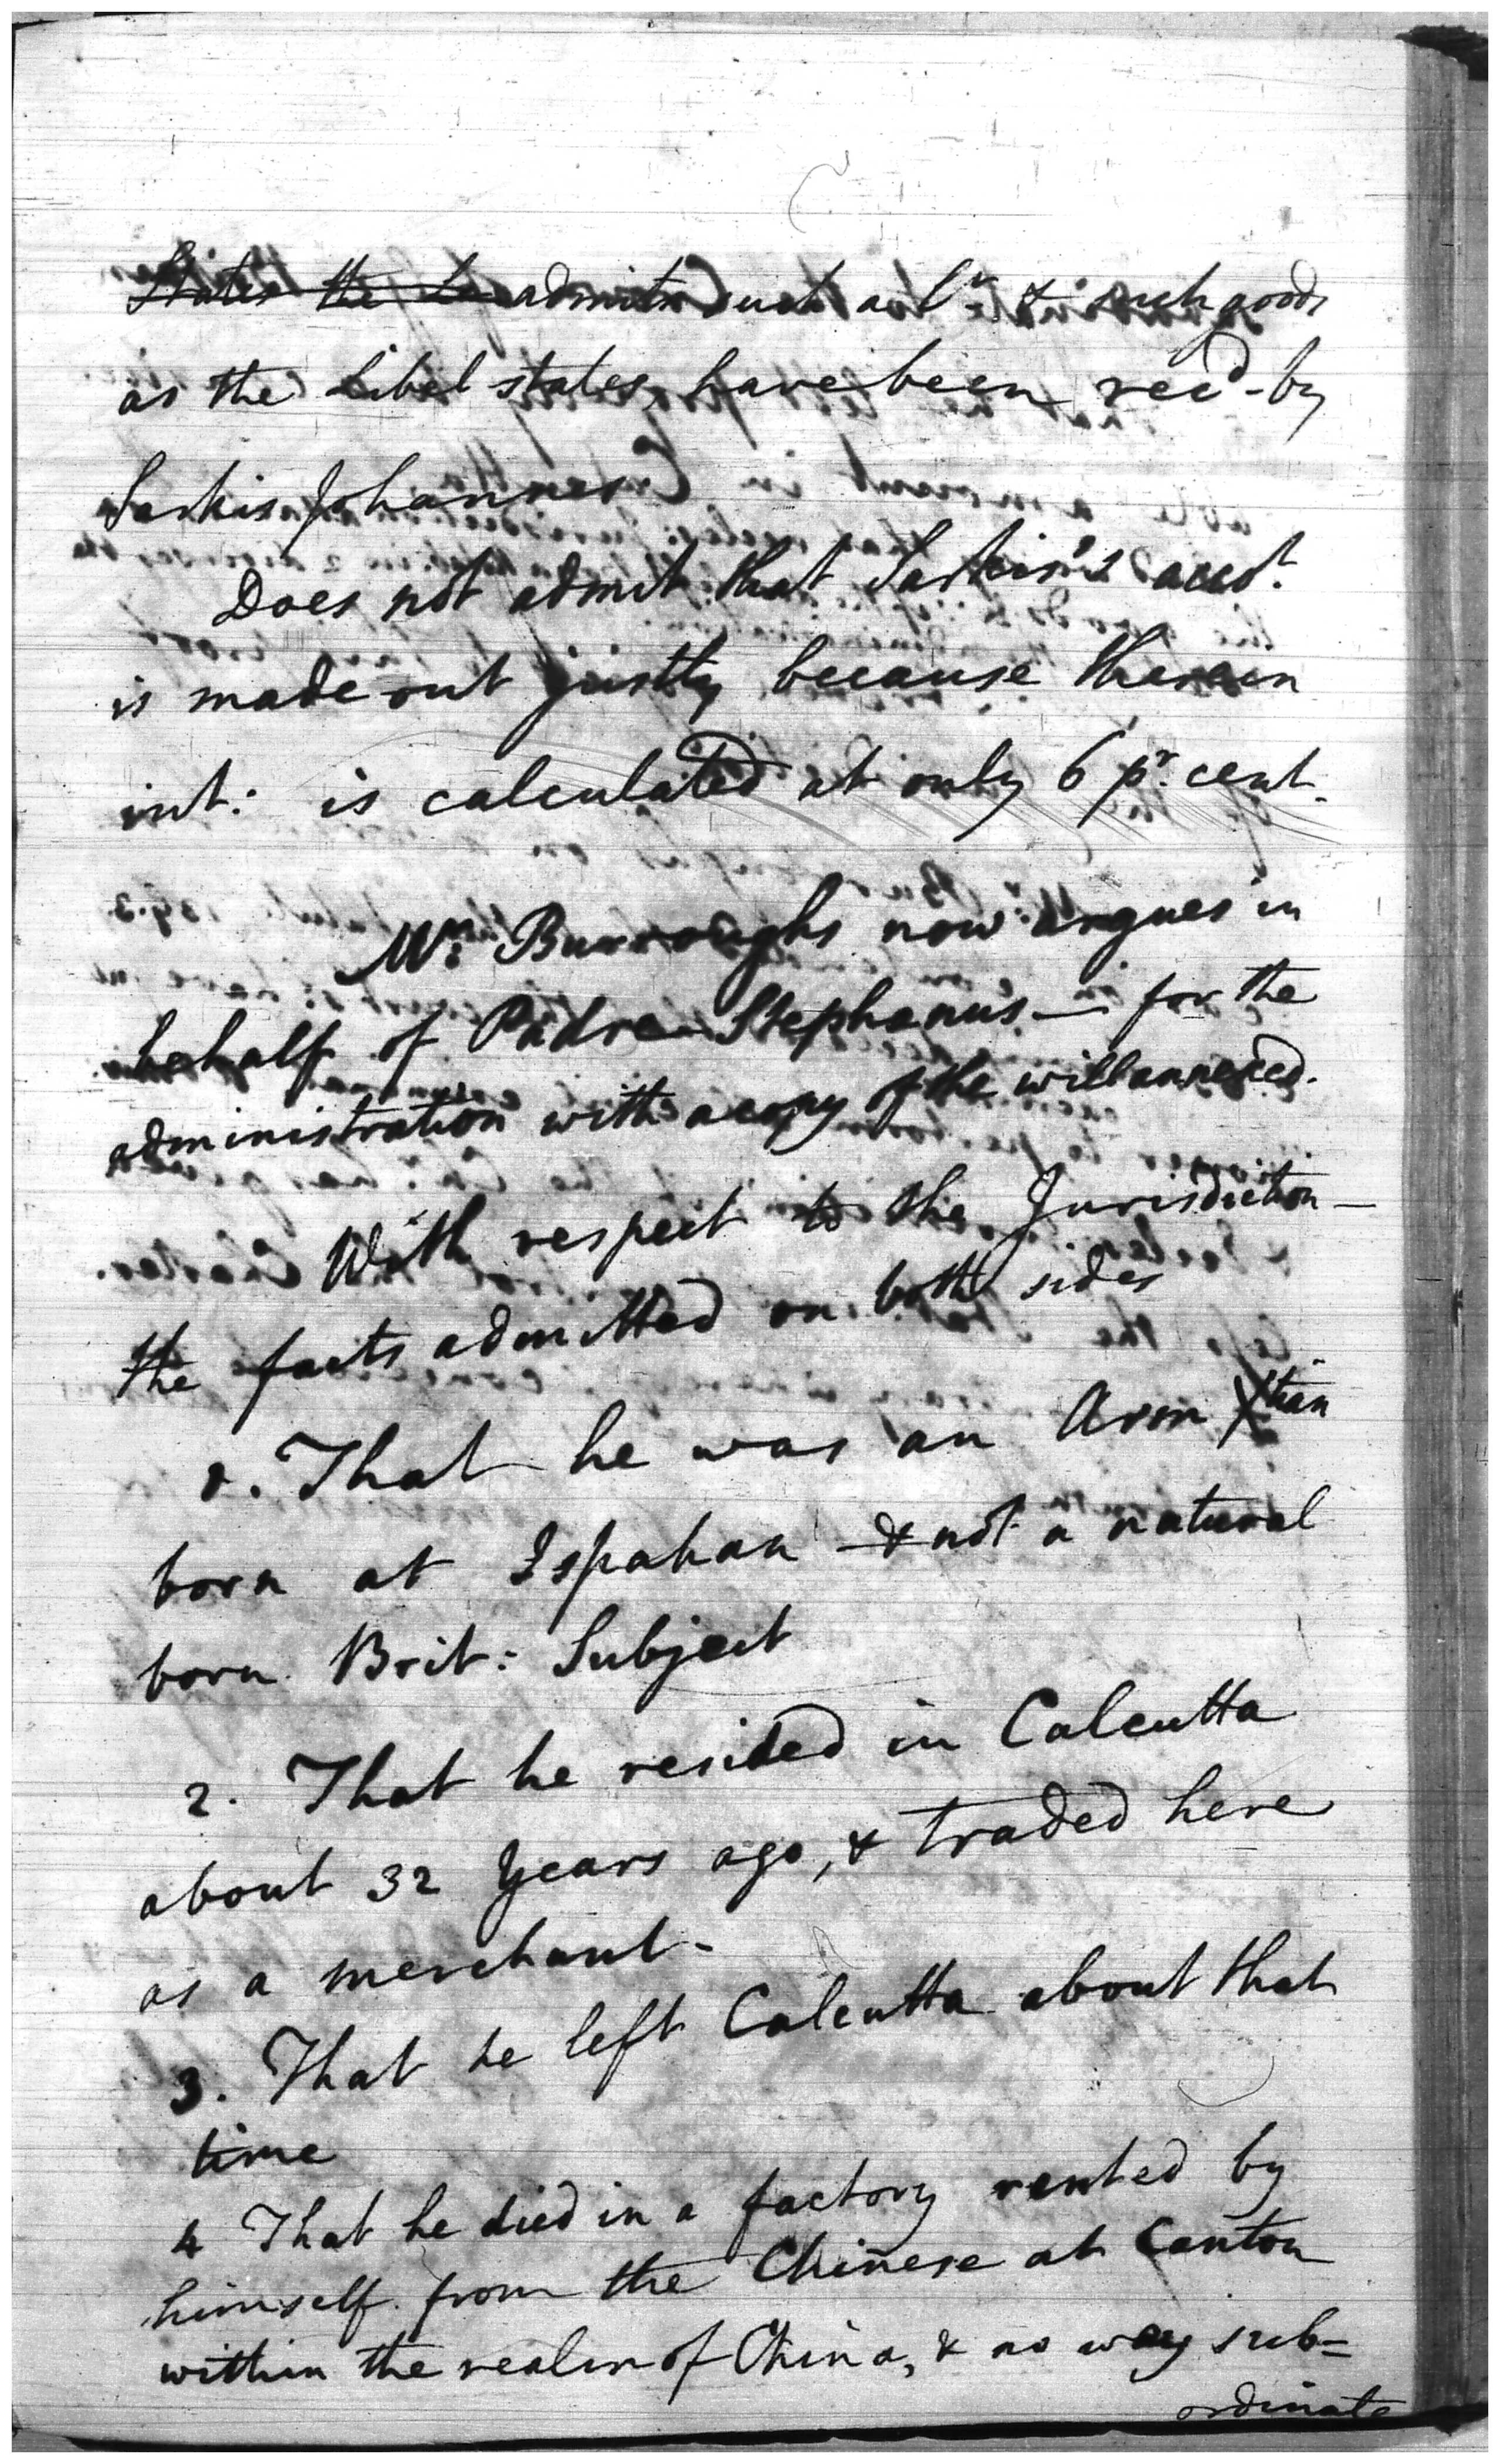 States the admits such a & such goods
as the Libel states, have been rec'd by
Sarkis Johannes.
Does not admit that Sarkis's acct.
is made out justly because therein
int: is calculated at only 6 pr. cent.
Mr. Burroughs now argues in
behalf of Padre Stephanus — for the
administration with a copy of the will annexed.
With respect to the Jurisdiction —
the facts admitted on both sides
1. That he was an Arm Xtian
born at Ispahan & not a natural
born Brit: Subject
2. That he resided in Calcutta
about 32 Years ago, & traded here
as a merchant.
3. That he left Calcutta about that
time
4 That he died in a factory rented by
himself from the Chinese at Canton
within the realm of China, & no way sub=
ordinate